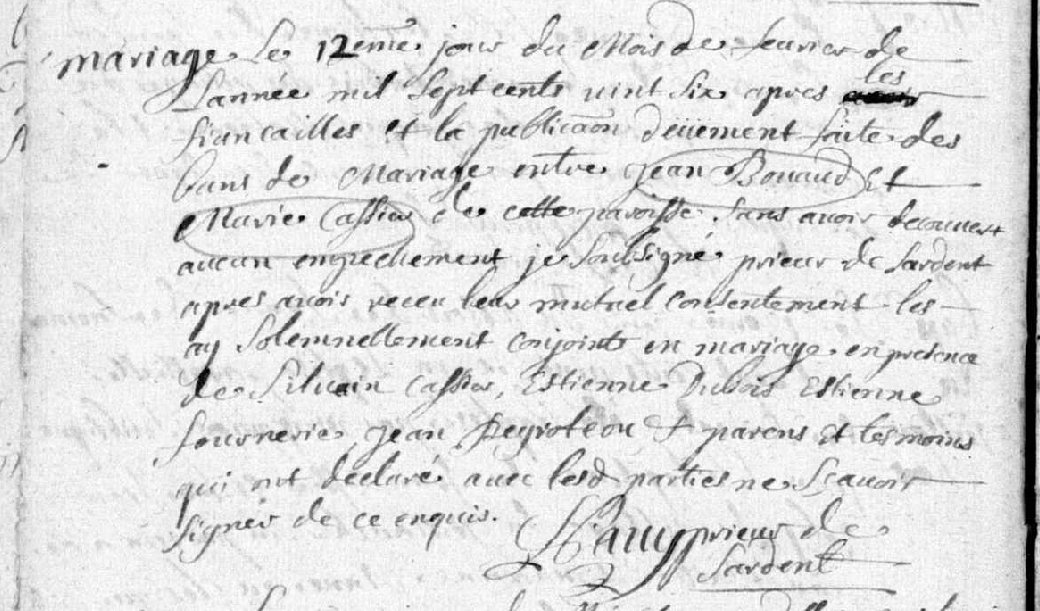 mariage Le 12eme jour du Mois de feurier de
Lannée mil Sept cents uint Six apres les
fiancailles et la publicaon deüement faite des
bans de Mariage entre Jean Bouaud Et
Marie Cassier de cette paroisse Sans auoir decouuert
aucun empechement je Soubsigné prieur de Sardent
apres auoir receu leur mutuel Consentement les
ay Solemnellement Conjoints en mariage en presence
de Siluain Cassier, Estienne Dubois Estienne
fournerie, Jean Peyroteou parens et tesmoins
qui ont declaré auec lesd parties ne Sçauoir
Signer de ce enquis. prieur de
Sardent